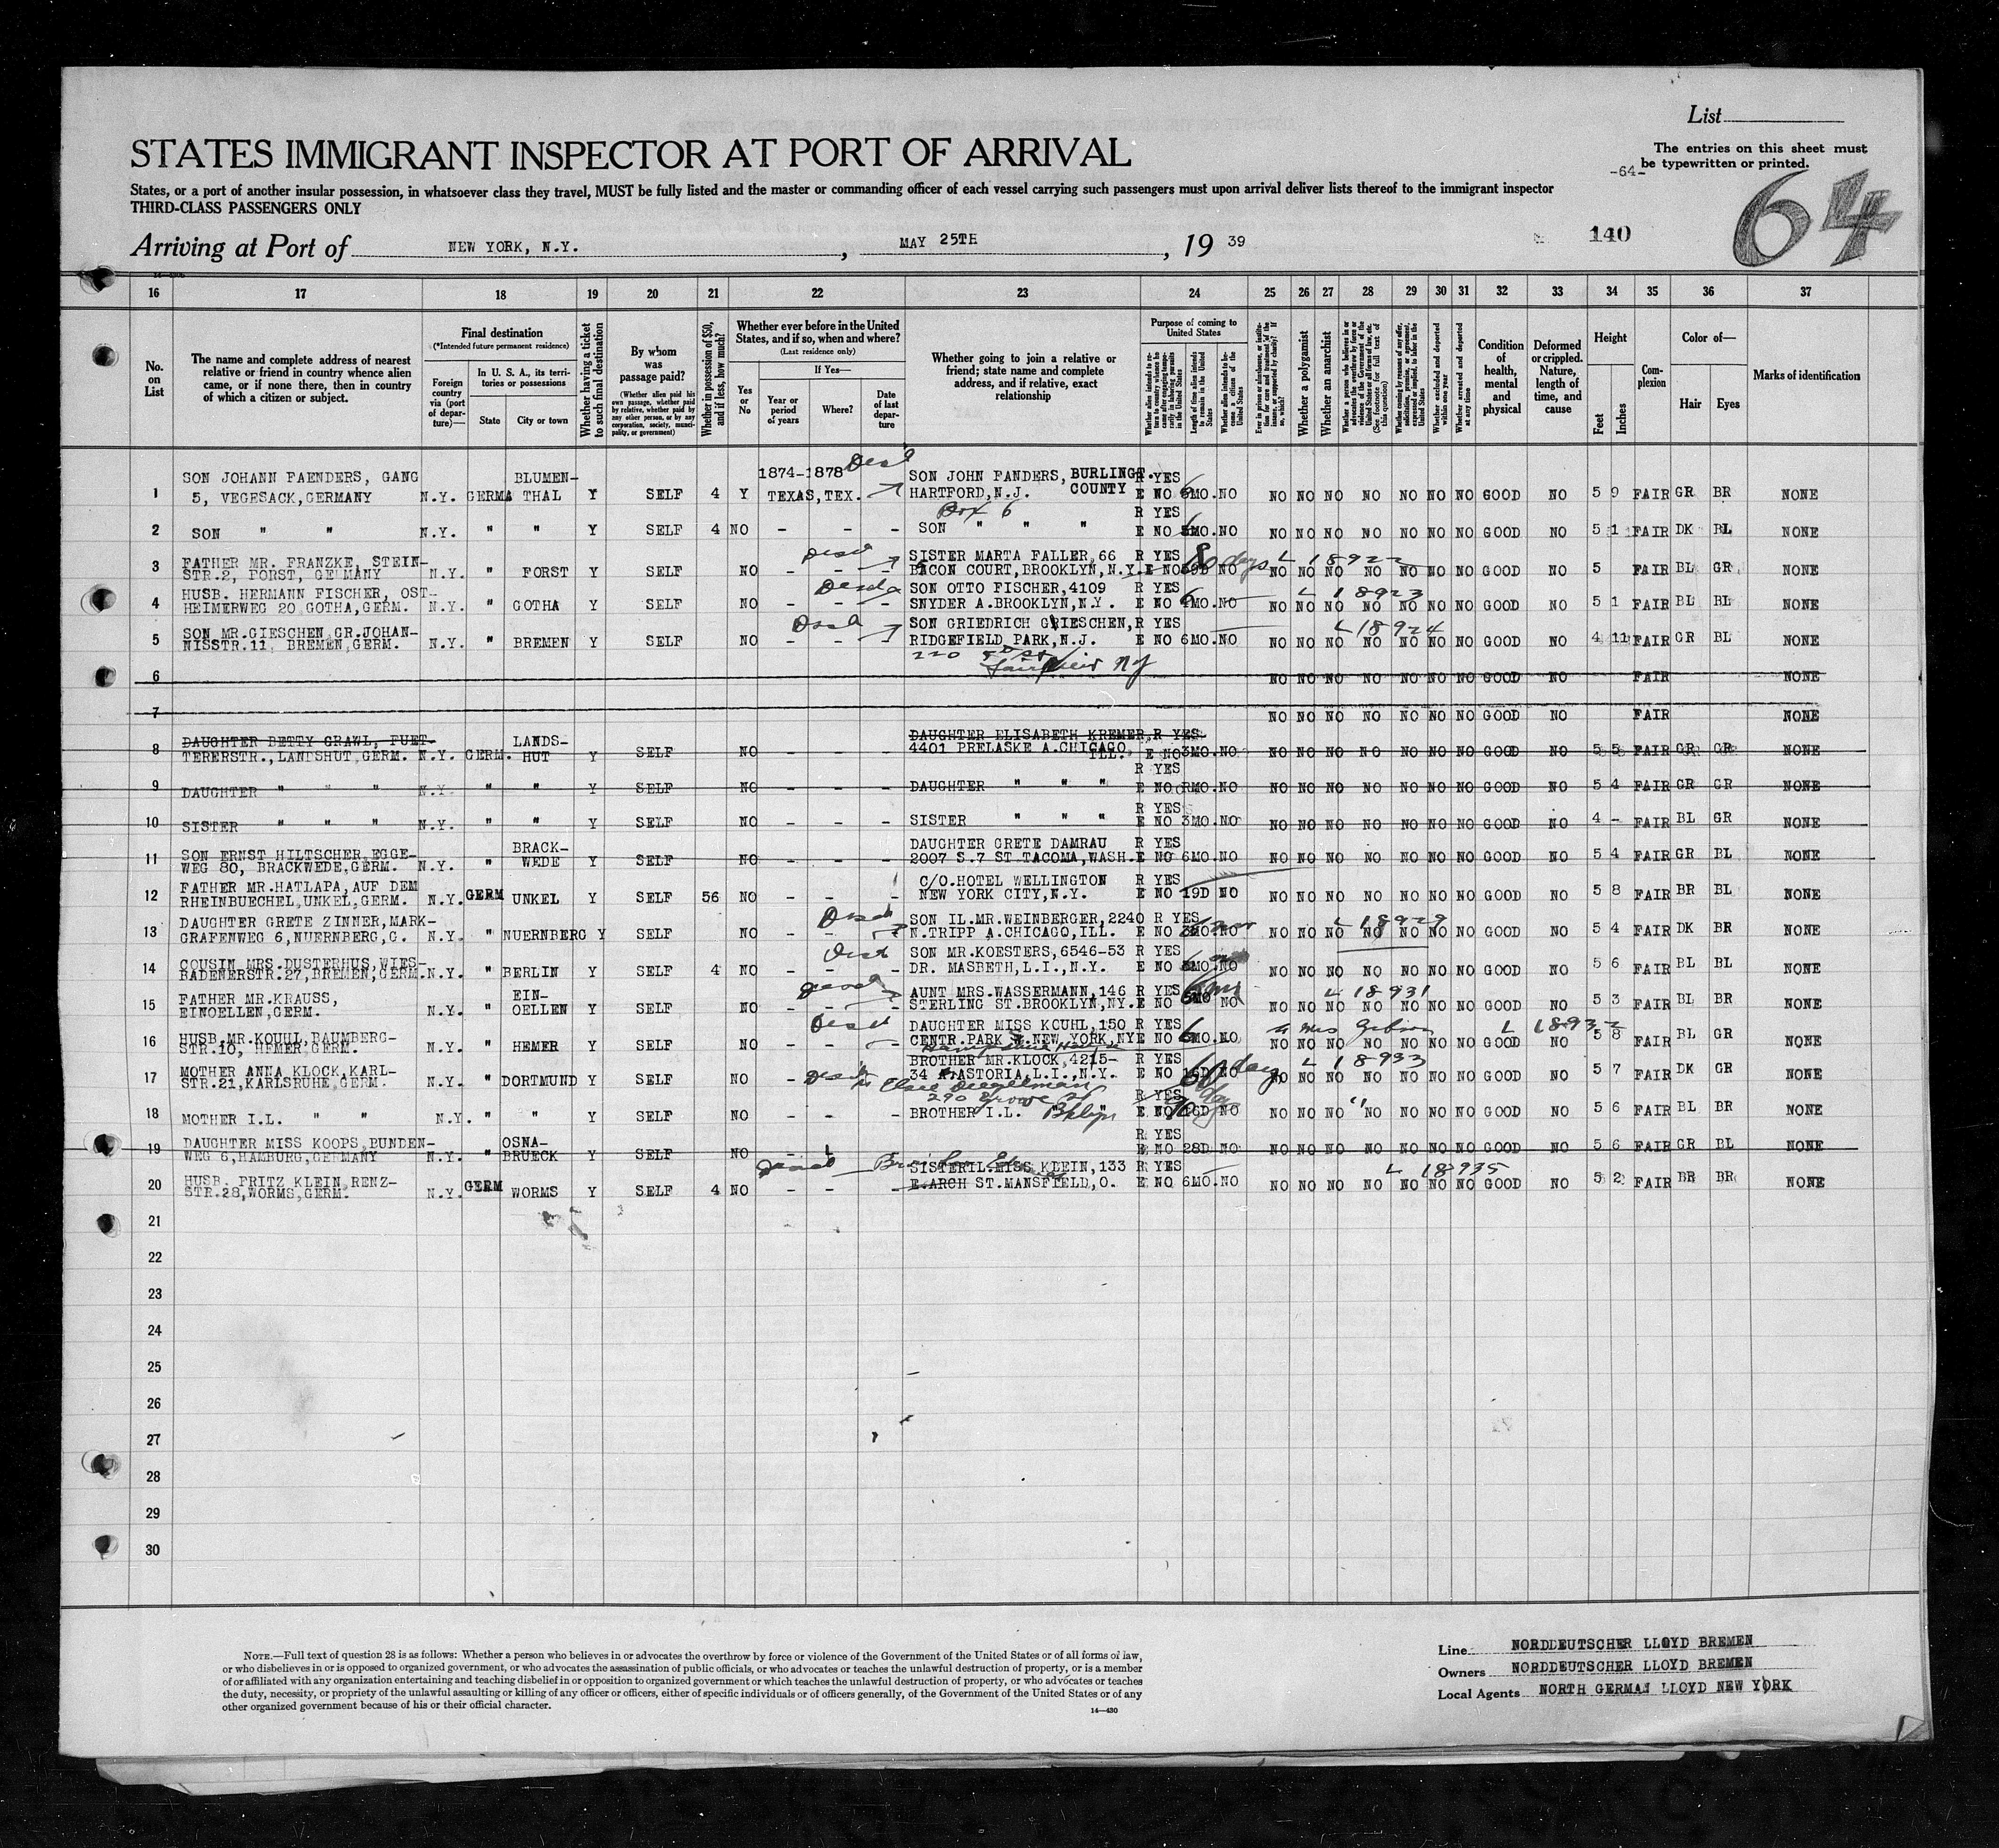 List
The entries on this sheet must
be typewritten or printed.
-64-
64
STATES IMMIGRANT INSPECTOR AT PORT OF ARRIVAL
States, or a port of another insular possession, in whatsoever class they travel, MUST be fully listed and the master or commanding officer of each vessel carrying such passengers must upon arrival deliver lists thereof to the immigrant inspector
THIRD-CLASS PASSENGERS ONLY
Arriving at Port of NEW YORK, N.Y. , MAY 25TH , 19 39
140
16 17 18 19 20 21 22 23 24 25 26 27 28 29 30 31 32 33 34 35 36 37
No. on List
The name and complete address of nearest
relative or friend in country whence alien
came, or if none there, then in country
of which a citizen or subject.
Final destination
(*Intended future permanent residence)
Foreign country via (port of departure)—
In U. S. A., its territories or possessions
State City or town
Whether having a ticket to such final destination
By whom was passage paid?
(Whether alien paid his own passage, whether paid by relative, whether paid by any other person, or by any corporation, society, municipality, or government)
Whether in possession of $50, and if less, how much?
Whether ever before in the United
States, and if so, when and where?
(Last residence only)
Yes or No
If Yes—
Year or period of years
Where?
Date of last departure
Whether going to join a relative or
friend; state name and complete
address, and if relative, exact
relationship
Purpose of coming to United States
Whether a polygamist
Whether an anarchist
Whether excluded and deported within one year
Whether arrested and deported at any time
Condition of health, mental and physical
Deformed or crippled. Nature, length of time, and cause
Height
Feet Inches
Complexion
Color of—
Hair Eyes
Marks of identification
1 SON JOHANN PAENDERS, GANG 5, VEGESACK,GERMANY N.Y. GERMA BLUMEN- THAL Y SELF 4 Y 1874-1878 TEXAS,TEX. SON JOHN FANDERS, BURLINGT. HARTFORD,N.J. COUNTY R YES E NO MO. NO NO NO NO NO NO NO NO GOOD NO 5 9 FAIR GR BR NONE
Box 6
2 SON " " N.Y. " " Y SELF 4 NO - - - SON " " " R YES E NO MO. NO NO NO NO NO NO NO NO GOOD NO 5 1 FAIR DK BL NONE
3 FATHER MR. FRANZKE, STEIN- STR.2, FORST, GERMANY N.Y. " FORST Y SELF NO - - - SISTER MARTA FALLER, 66 BACON COURT,BROOKLYN,N.Y. R YES E NO 60 days NO L 18922 NO NO NO NO NO NO NO GOOD NO 5 FAIR BL GR NONE
4 HUSB. HERMANN FISCHER, OST- HEIMERWEG 20 GOTHA,GERM. N.Y. " GOTHA Y SELF NO - - - SON OTTO FISCHER,4109 SNYDER A.BROOKLYN,N.Y. R YES E NO MO. NO L 18923 NO NO NO NO NO NO NO GOOD NO 5 1 FAIR BL BL NONE
5 SON MR.GIESCHEN GR.JOHAN- NISSTR.11, BREMEN,GERM. N.Y. " BREMEN Y SELF NO - - - SON GRIEDRICH GRIESCHEN, RIDGEFIELD PARK,N.J. R YES E NO 6MO. NO L 18924 NO NO NO NO NO NO NO GOOD NO 4 11 FAIR GR BL NONE
220
6 NO NO NO NO NO NO NO GOOD NO FAIR NONE
7 NO NO NO NO NO NO NO GOOD NO FAIR NONE
8 DAUGHTER BETTY GRAWL, FUET- TERERSTR.,LANDSHUT GERM. N.Y. GERM. LANDS- HUT Y SELF NO - - - DAUGHTER ELISABETH KREMER, 4401 PRELASKE A.CHICAGO, ILL. R YES E NO 3MO. NO NO NO NO NO NO NO NO GOOD NO 5 5 FAIR GR GR NONE
9 DAUGHTER " " " N.Y. " " Y SELF NO - - - DAUGHTER " " " R YES E NO MO. NO NO NO NO NO NO NO NO GOOD NO 5 4 FAIR GR GR NONE
10 SISTER " " " N.Y. " " Y SELF NO - - - SISTER " " " R YES E NO 3MO. NO NO NO NO NO NO NO NO GOOD NO 4 - FAIR BL GR NONE
11 SON ERNST HILTSCHER,EGGE- WEG 80, BRACKWEDE,GERM. N.Y. " BRACK- WEDE Y SELF NO - - - DAUGHTER GRETE DAMRAU 2007 S.7 ST TACOMA,WASH. R YES E NO 6MO. NO NO NO NO NO NO NO NO GOOD NO 5 4 FAIR GR BL NONE
12 FATHER MR.HATLAPA,AUF DEM RHEINBUECHEL,UNKEL,GERM. N.Y. GERM UNKEL Y SELF 56 NO - - - C/O.HOTEL WELLINGTON NEW YORK CITY,N.Y. R YES E NO 19D NO NO NO NO NO NO NO NO GOOD NO 5 8 FAIR BR BL NONE
13 DAUGHTER GRETE ZINNER,MARK- GRAFENWEG 6,NUERNBERG,G. N.Y. " NUERNBERG Y SELF NO - - SON IL.MR.WEINBERGER,2240 N.TRIPP A.CHICAGO,ILL. R YES E NO NO L 18929 NO NO NO NO NO NO NO GOOD NO 5 4 FAIR DK BR NONE
14 COUSIN MRS.DUSTERHUS,WIES- BADENERSTR.27,BREMEN,GERM. N.Y. " BERLIN Y SELF 4 NO - - - SON MR.KOESTERS,6546-53 DR. MASBETH,L.I.,N.Y. R YES E NO MO. NO NO NO NO NO NO NO NO GOOD NO 5 6 FAIR BL BL NONE
15 FATHER MR.KRAUSS, EINOELLEN,GERM. N.Y. " EIN- OELLEN Y SELF NO - - - AUNT MRS.WASSERMANN,146 STERLING ST.BROOKLYN,NY. R YES E NO MO NO L 18931 NO NO NO NO NO NO NO GOOD NO 5 3 FAIR BL BR NONE
16 HUSB.MR.KOUHL,BAUMBERG- STR.10, HEMER GERM. N.Y. " HEMER Y SELF NO - - DAUGHTER MISS KOUHL,150 CENTR.PARK S.NEW YORK,NY R YES E NO 6MO. NO L 18932 NO NO NO NO NO NO NO GOOD NO 5 8 FAIR BL GR NONE
17 MOTHER ANNA KLOCK,KARL- STR.21,KARLSRUHE,GERM. N.Y. " DORTMUND Y SELF NO - BROTHER MR.KLOCK,4215- 34 ASTORIA,L.I.,N.Y. R YES E NO 60 days NO L 18933 NO NO NO NO NO NO NO GOOD NO 5 7 DK GR FAIR NONE
290 Grove St
18 MOTHER I.L. " " N.Y. " " Y SELF NO - - BROTHER I.L. Bklyn R YES E NO D NO NO NO NO " NO NO NO NO GOOD NO 5 6 FAIR BL BR NONE
19 DAUGHTER MISS KOOPS,BUNDEN- WEG 6,HAMBURG,GERMANY N.Y. " OSNA- BRUECK Y SELF NO - R YES E NO 28D NO NO NO NO NO NO NO NO GOOD NO 5 6 FAIR GR BL NONE
20 HUSB. FRITZ KLEIN,RENZ- STR.28,WORMS,GERM. N.Y. GERM WORMS Y SELF 4 NO - - - SISTERIL.MISS KLEIN,133 E.ARCH ST.MANSFIELD,O. R YES E NO 6MO. NO L 18935 NO NO NO NO NO NO NO GOOD NO 5 2 FAIR BR BR NONE
21
22
23
24
25
26
27
28
29
30
NOTE.—Full text of question 28 is as follows: Whether a person who believes in or advocates the overthrow by force or violence of the Government of the United States or of all forms of law,
or who disbelieves in or is opposed to organized government, or who advocates the assassination of public officials, or who advocates or teaches the unlawful destruction of property, or is a member
of or affiliated with any organization entertaining and teaching disbelief in or opposition to organized government or which teaches the unlawful destruction of property, or who advocates or teaches
the duty, necessity, or propriety of the unlawful assaulting or killing of any officer or officers, either of specific individuals or of officers generally, of the Government of the United States or of any
other organized government because of his or their official character.
14—430
Line NORDDEUTSCHER LLOYD BREMEN
Owners NORDDEUTSCHER LLOYD BREMEN
Local Agents NORTH GERMAN LLOYD NEW YORK